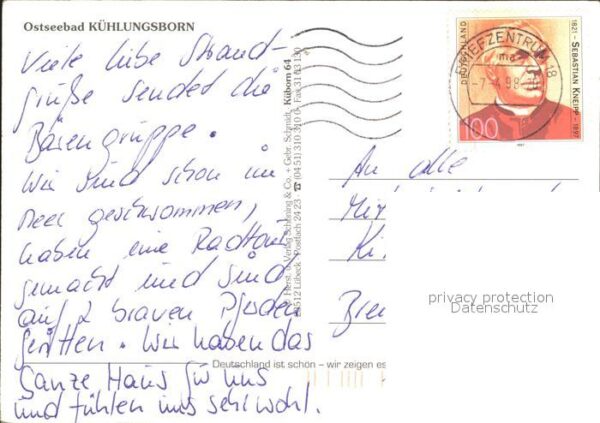 Ostseebad KÜHLUNGSBORN
Viele liebe Strand-
grüße sendet die
Bärengruppe.
Wir sind schon im
Meer geschwommen,
haben eine Radtour
gemacht und sind
auf 2 braven Pferden
geritten. Wir haben das
Ganze Haus für uns
und fühlen uns sehr wohl.
Horst u. Verlag Schöning & Co. + Gebr. Schmidt, Küborn 64
23512 Lübeck · Postfach 24 23 · ☎ (04 51) 310 310 · Fax 31 03 130
Deutschland ist schön – wir zeigen es
DEUTSCHLAND
100
1821 - SEBASTIAN KNEIPP - 1897
1997
BRIEFZENTRUM 18
An alle
privacy protection
Datenschutz